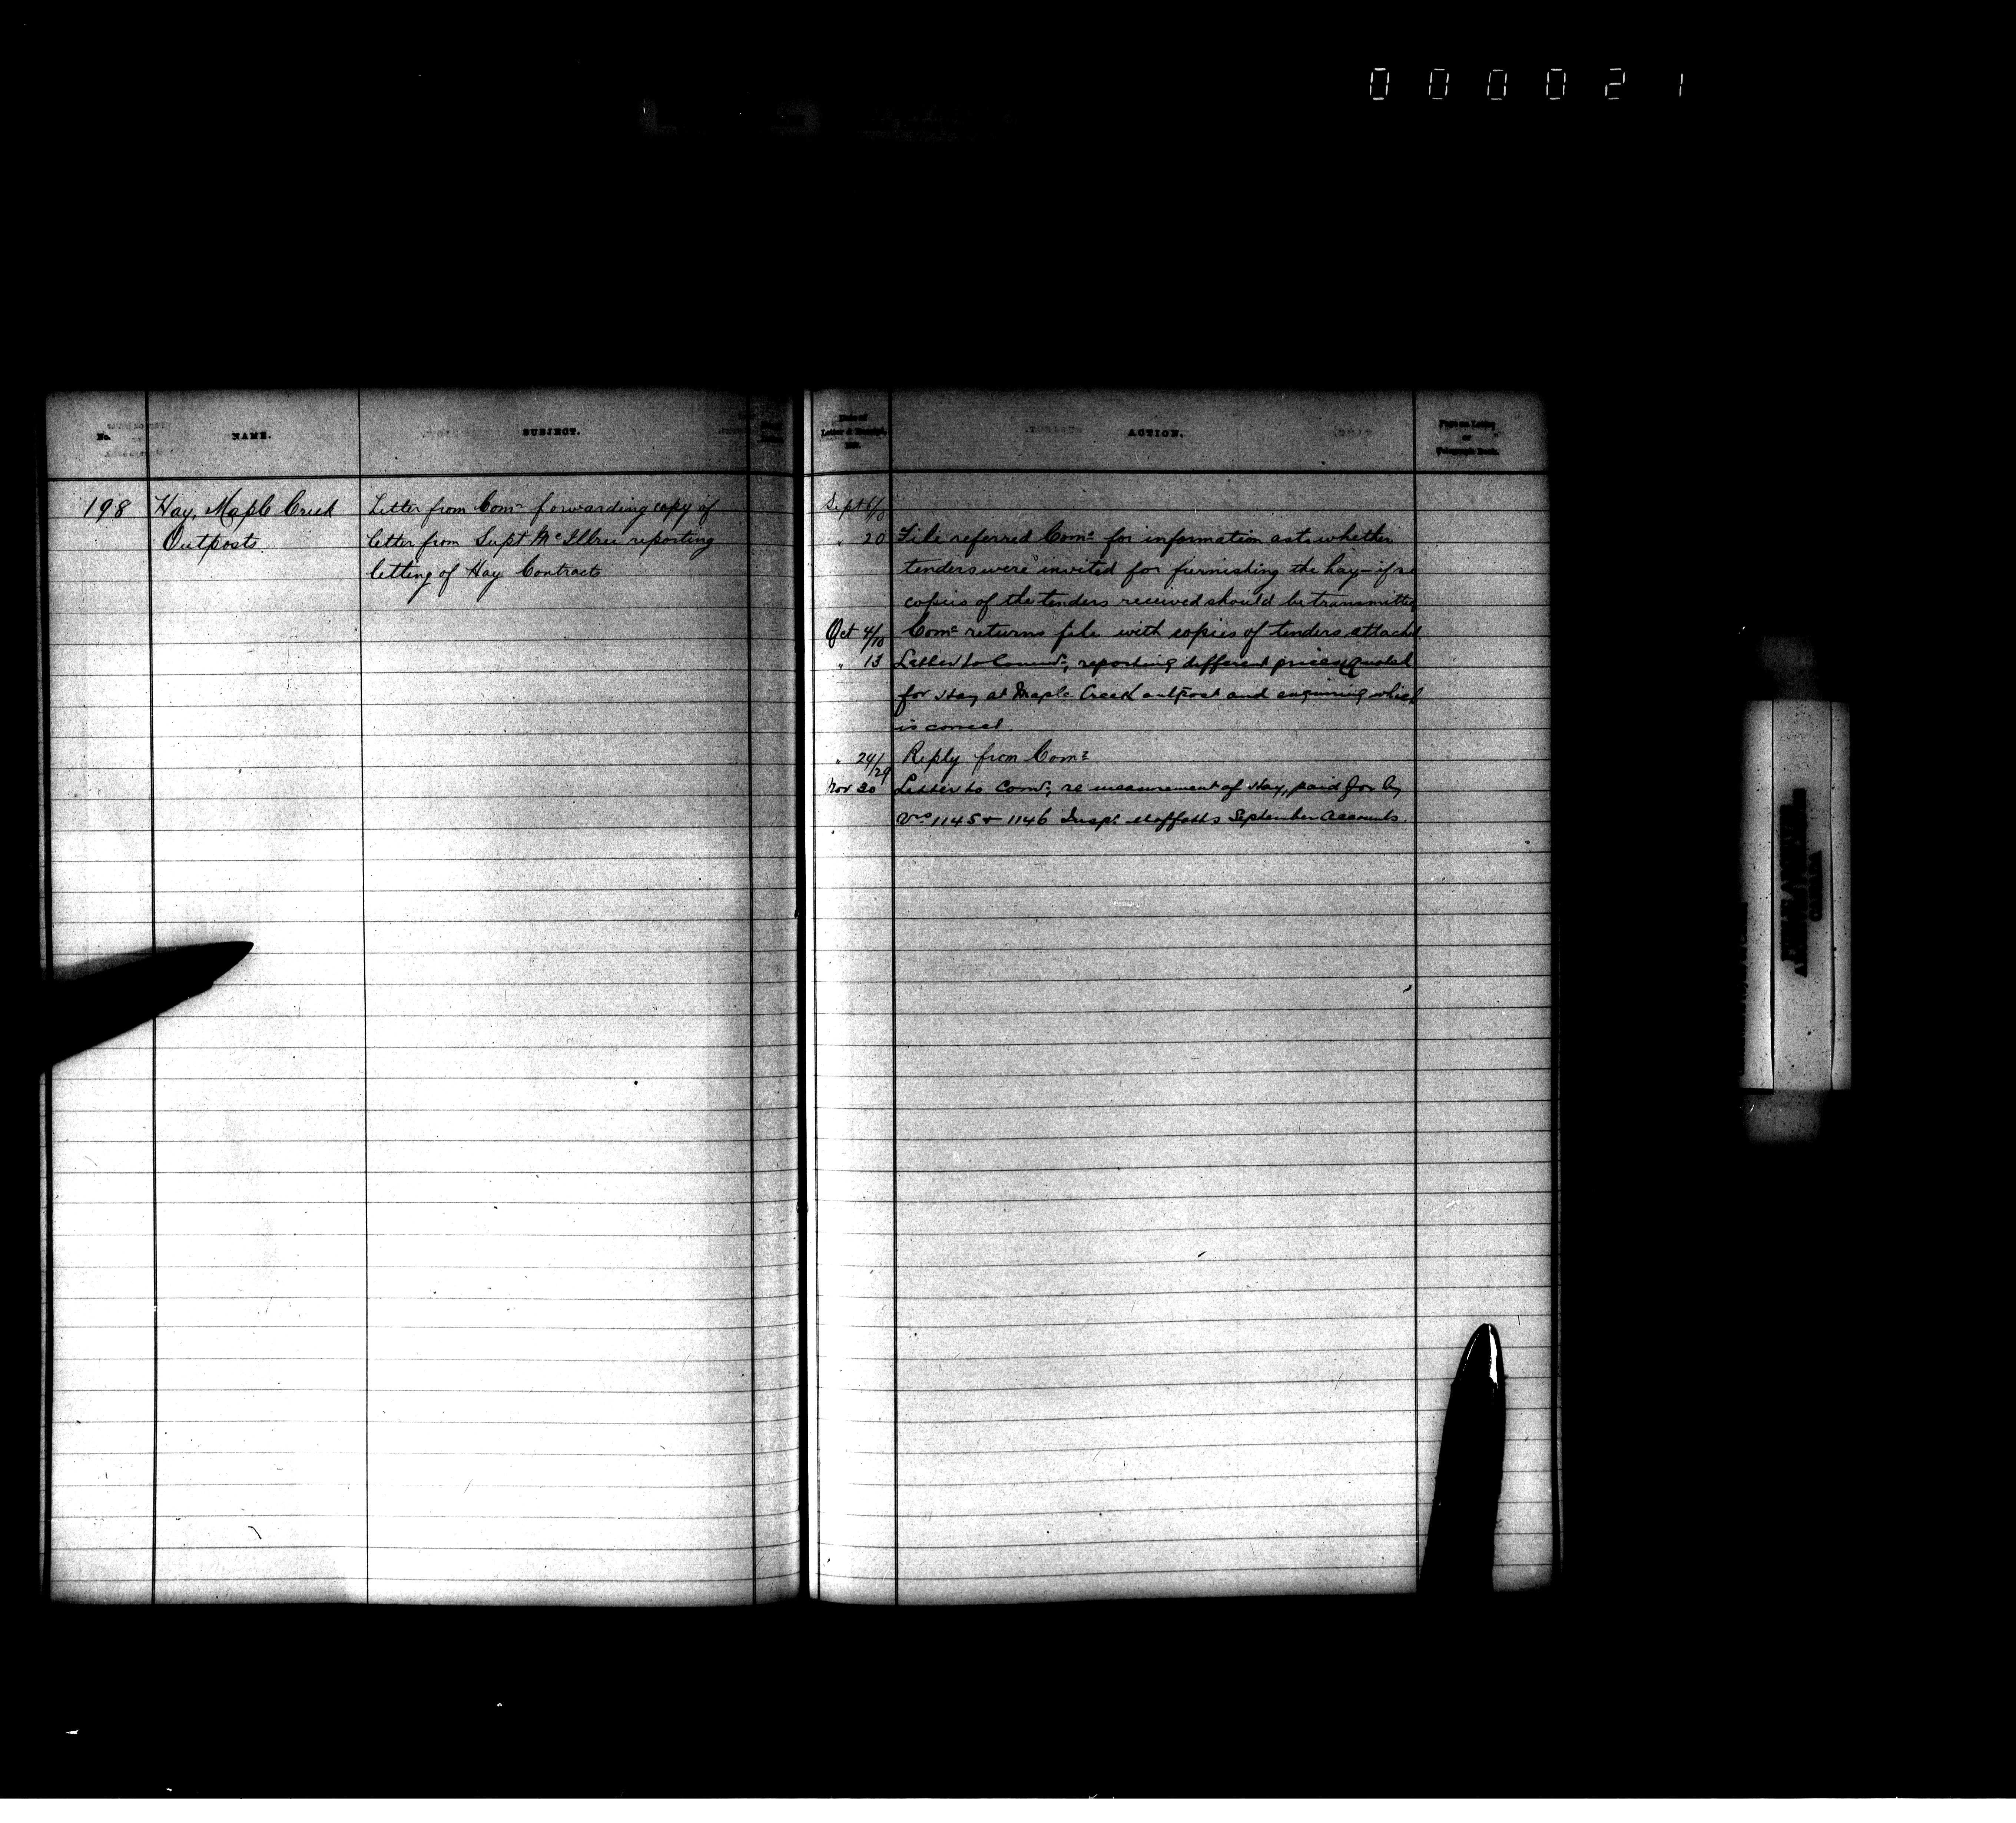 000021
No.
NAME.
SUBJECT.
Date of
Letter & Receipt,
ACTION.
Page on Letter
or
Telegraph Book.
198
Hay, Maple Creek
Outposts.
Letter from Comr forwarding copy of
letter from Supt McIllree reporting
letting of Hay Contracts
Sept 6/
" 20 File referred Comr for information as to whether
tenders were invited for furnishing the hay - if so
copies of the tenders received should be transmitted
Oct 4/ Comr returns file with copies of tenders attached
" 13 Letter to Commr, reporting different prices quoted
for Hay at Maple Creek outpost and enquiring which
is correct.
" 24/29 Reply from Comr
Nov 30 Letter to Comr, re measurement of Hay, paid for by
Vrs 1145 & 1146 Inspr Moffatts September Accounts.